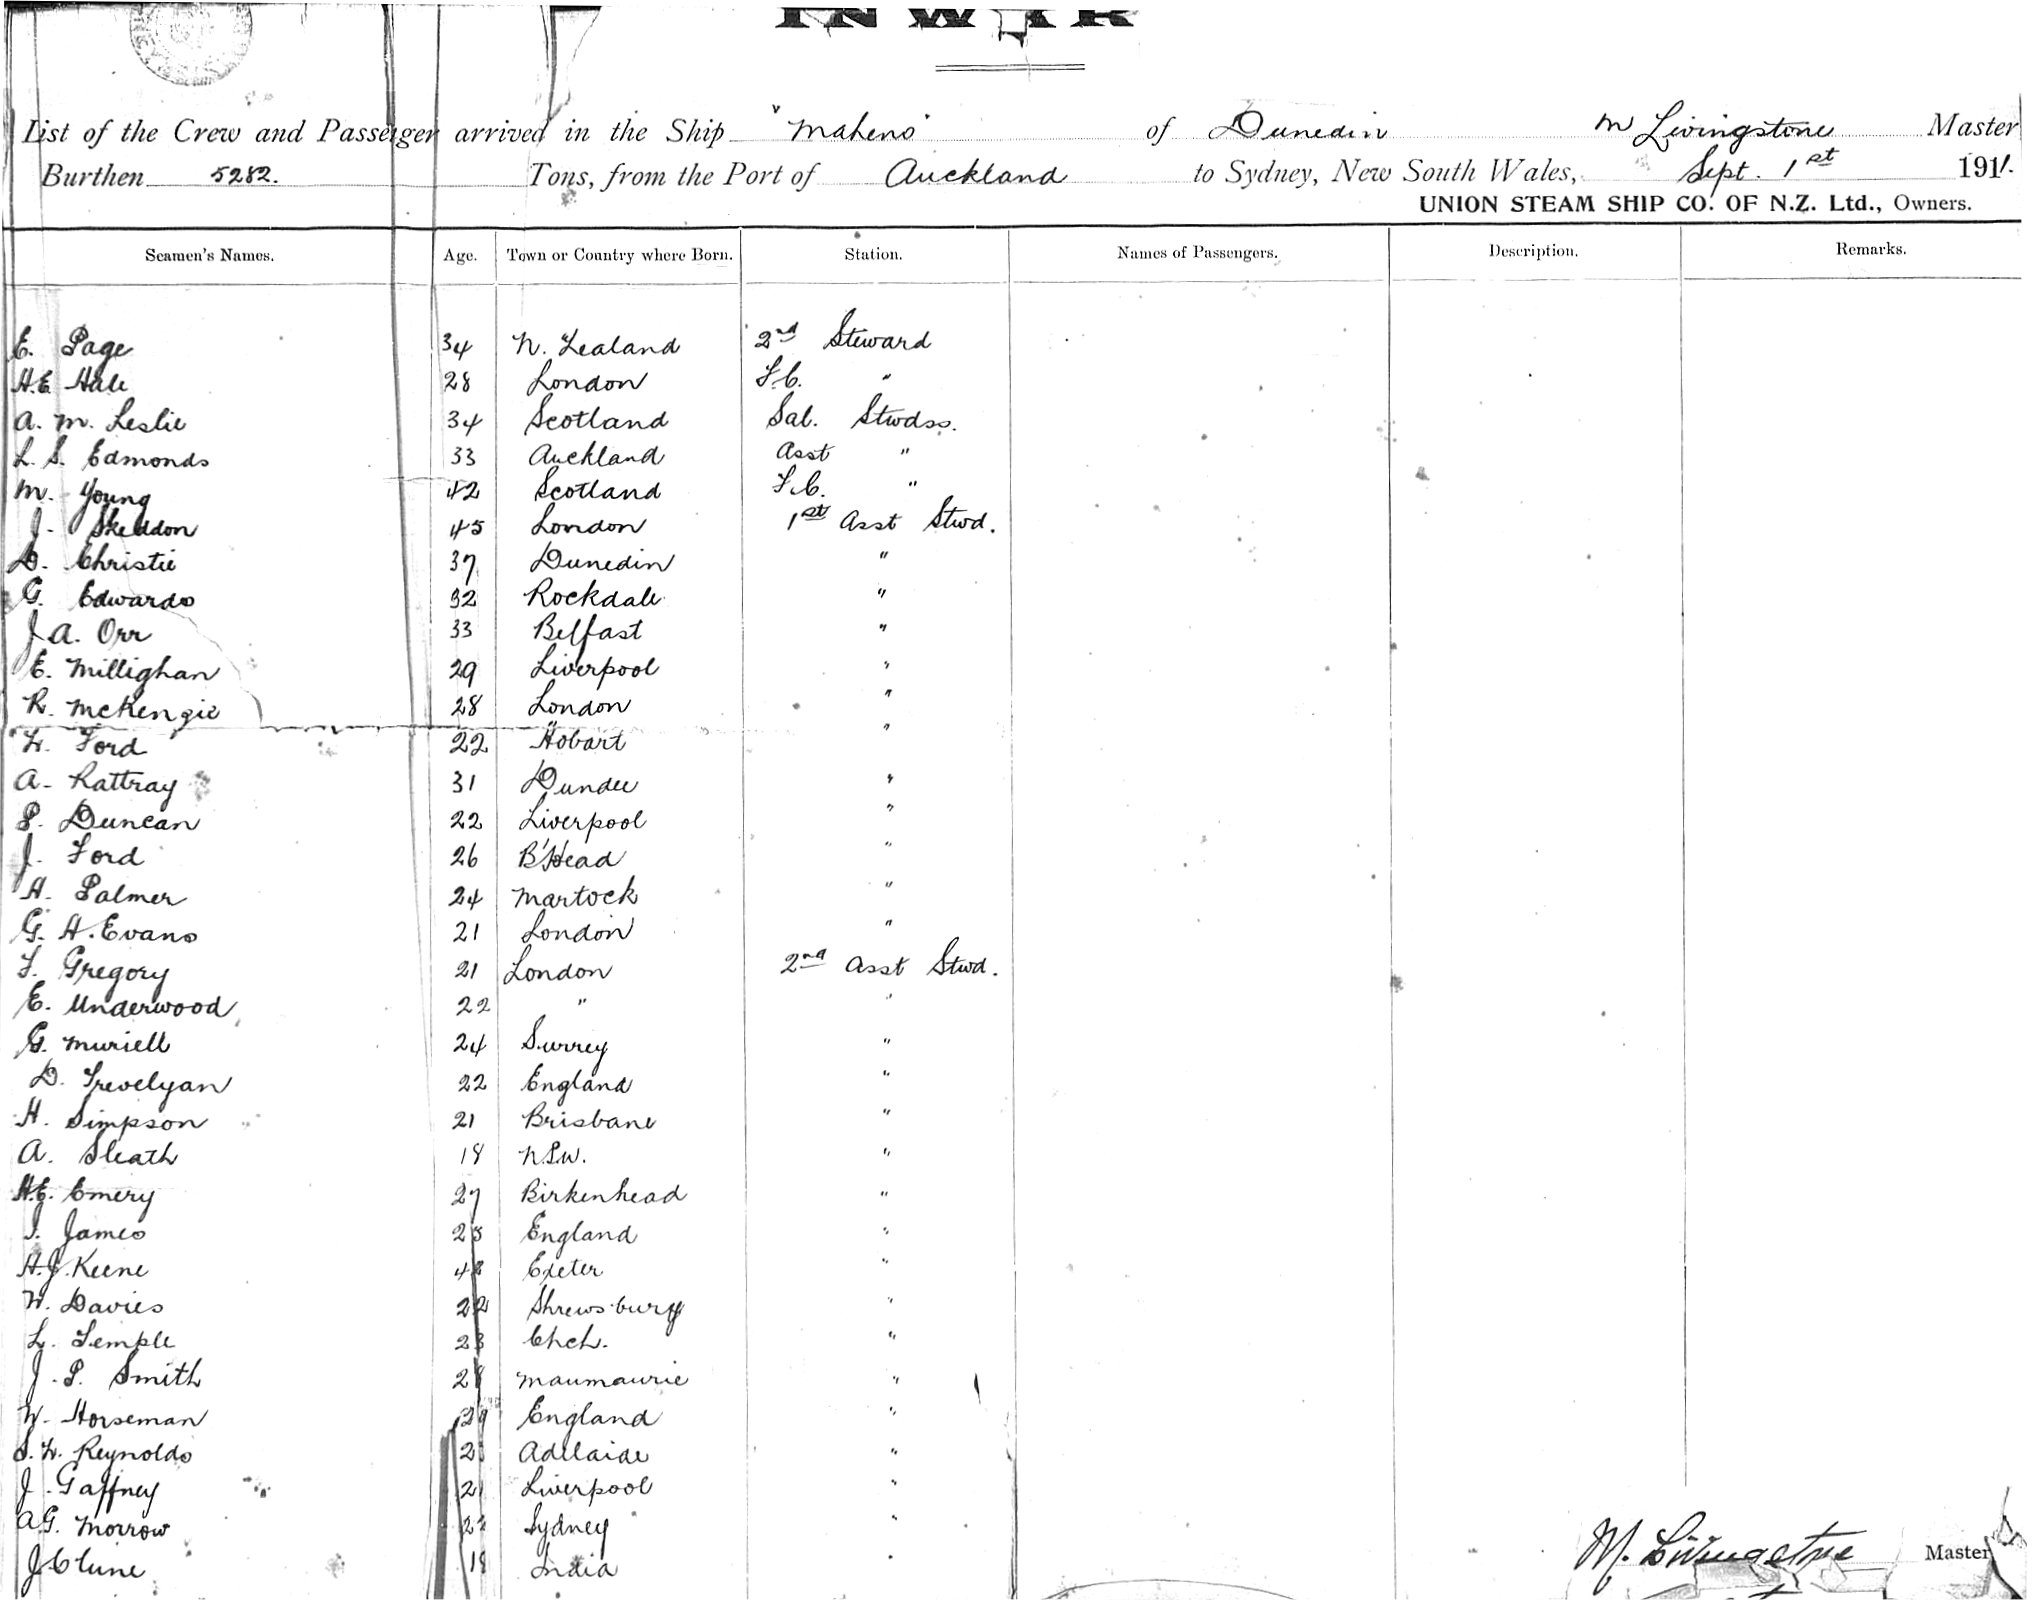 INWAR
List of the Crew and Passenger arrived in the Ship "Maheno" of Dunedin M Livingstone Master
Burthen 5282. Tons, from the Port of Auckland to Sydney, New South Wales, Sept. 1st 1911.
UNION STEAM SHIP CO. OF N.Z. Ltd., Owners.
Seamen's Names. Age. Town or Country where Born. Station. Names of Passengers. Description. Remarks.
E. Page 34 N. Zealand 2nd Steward
H.E Hale 28 London F.C. "
A. M. Leslie 34 Scotland Sal. Stwdss.
L. S. Edmonds 33 Auckland Asst "
M. Young 42 Scotland F.C. "
J. Skeddon 45 London 1st Asst Stwd.
D. Christie 37 Dunedin "
G. Edwards 32 Rockdale "
J A. Orr 33 Belfast "
E. Millighan 29 Liverpool "
R. McKenzie 28 London "
Ford 22 Hobart "
A. Rattray 31 Dundee "
P. Duncan 22 Liverpool "
J. Ford 26 B'Head "
H. Palmer 24 Martock "
G. H. Evans 21 London "
F. Gregory 21 London 2nd Asst Stwd.
E. Underwood 22 " "
G. Muriell 24 Surrey "
D. Trevelyan 22 England "
H. Simpson 21 Brisbane "
A. Sleath 18 N.S.W. "
H.E. Emery 27 Birkenhead "
James 23 England "
H.J. Keene 48 Exeter "
W. Davies 22 Shrewsbury "
L. Temple 23 Chch. "
J. P. Smith Maumaurie "
W. Horseman 29 England "
Reynolds Adelaide "
J. Gaffney 21 Liverpool "
A G. Morrow 22 Sydney "
J Clune 18 India "
M. Livingstone Master